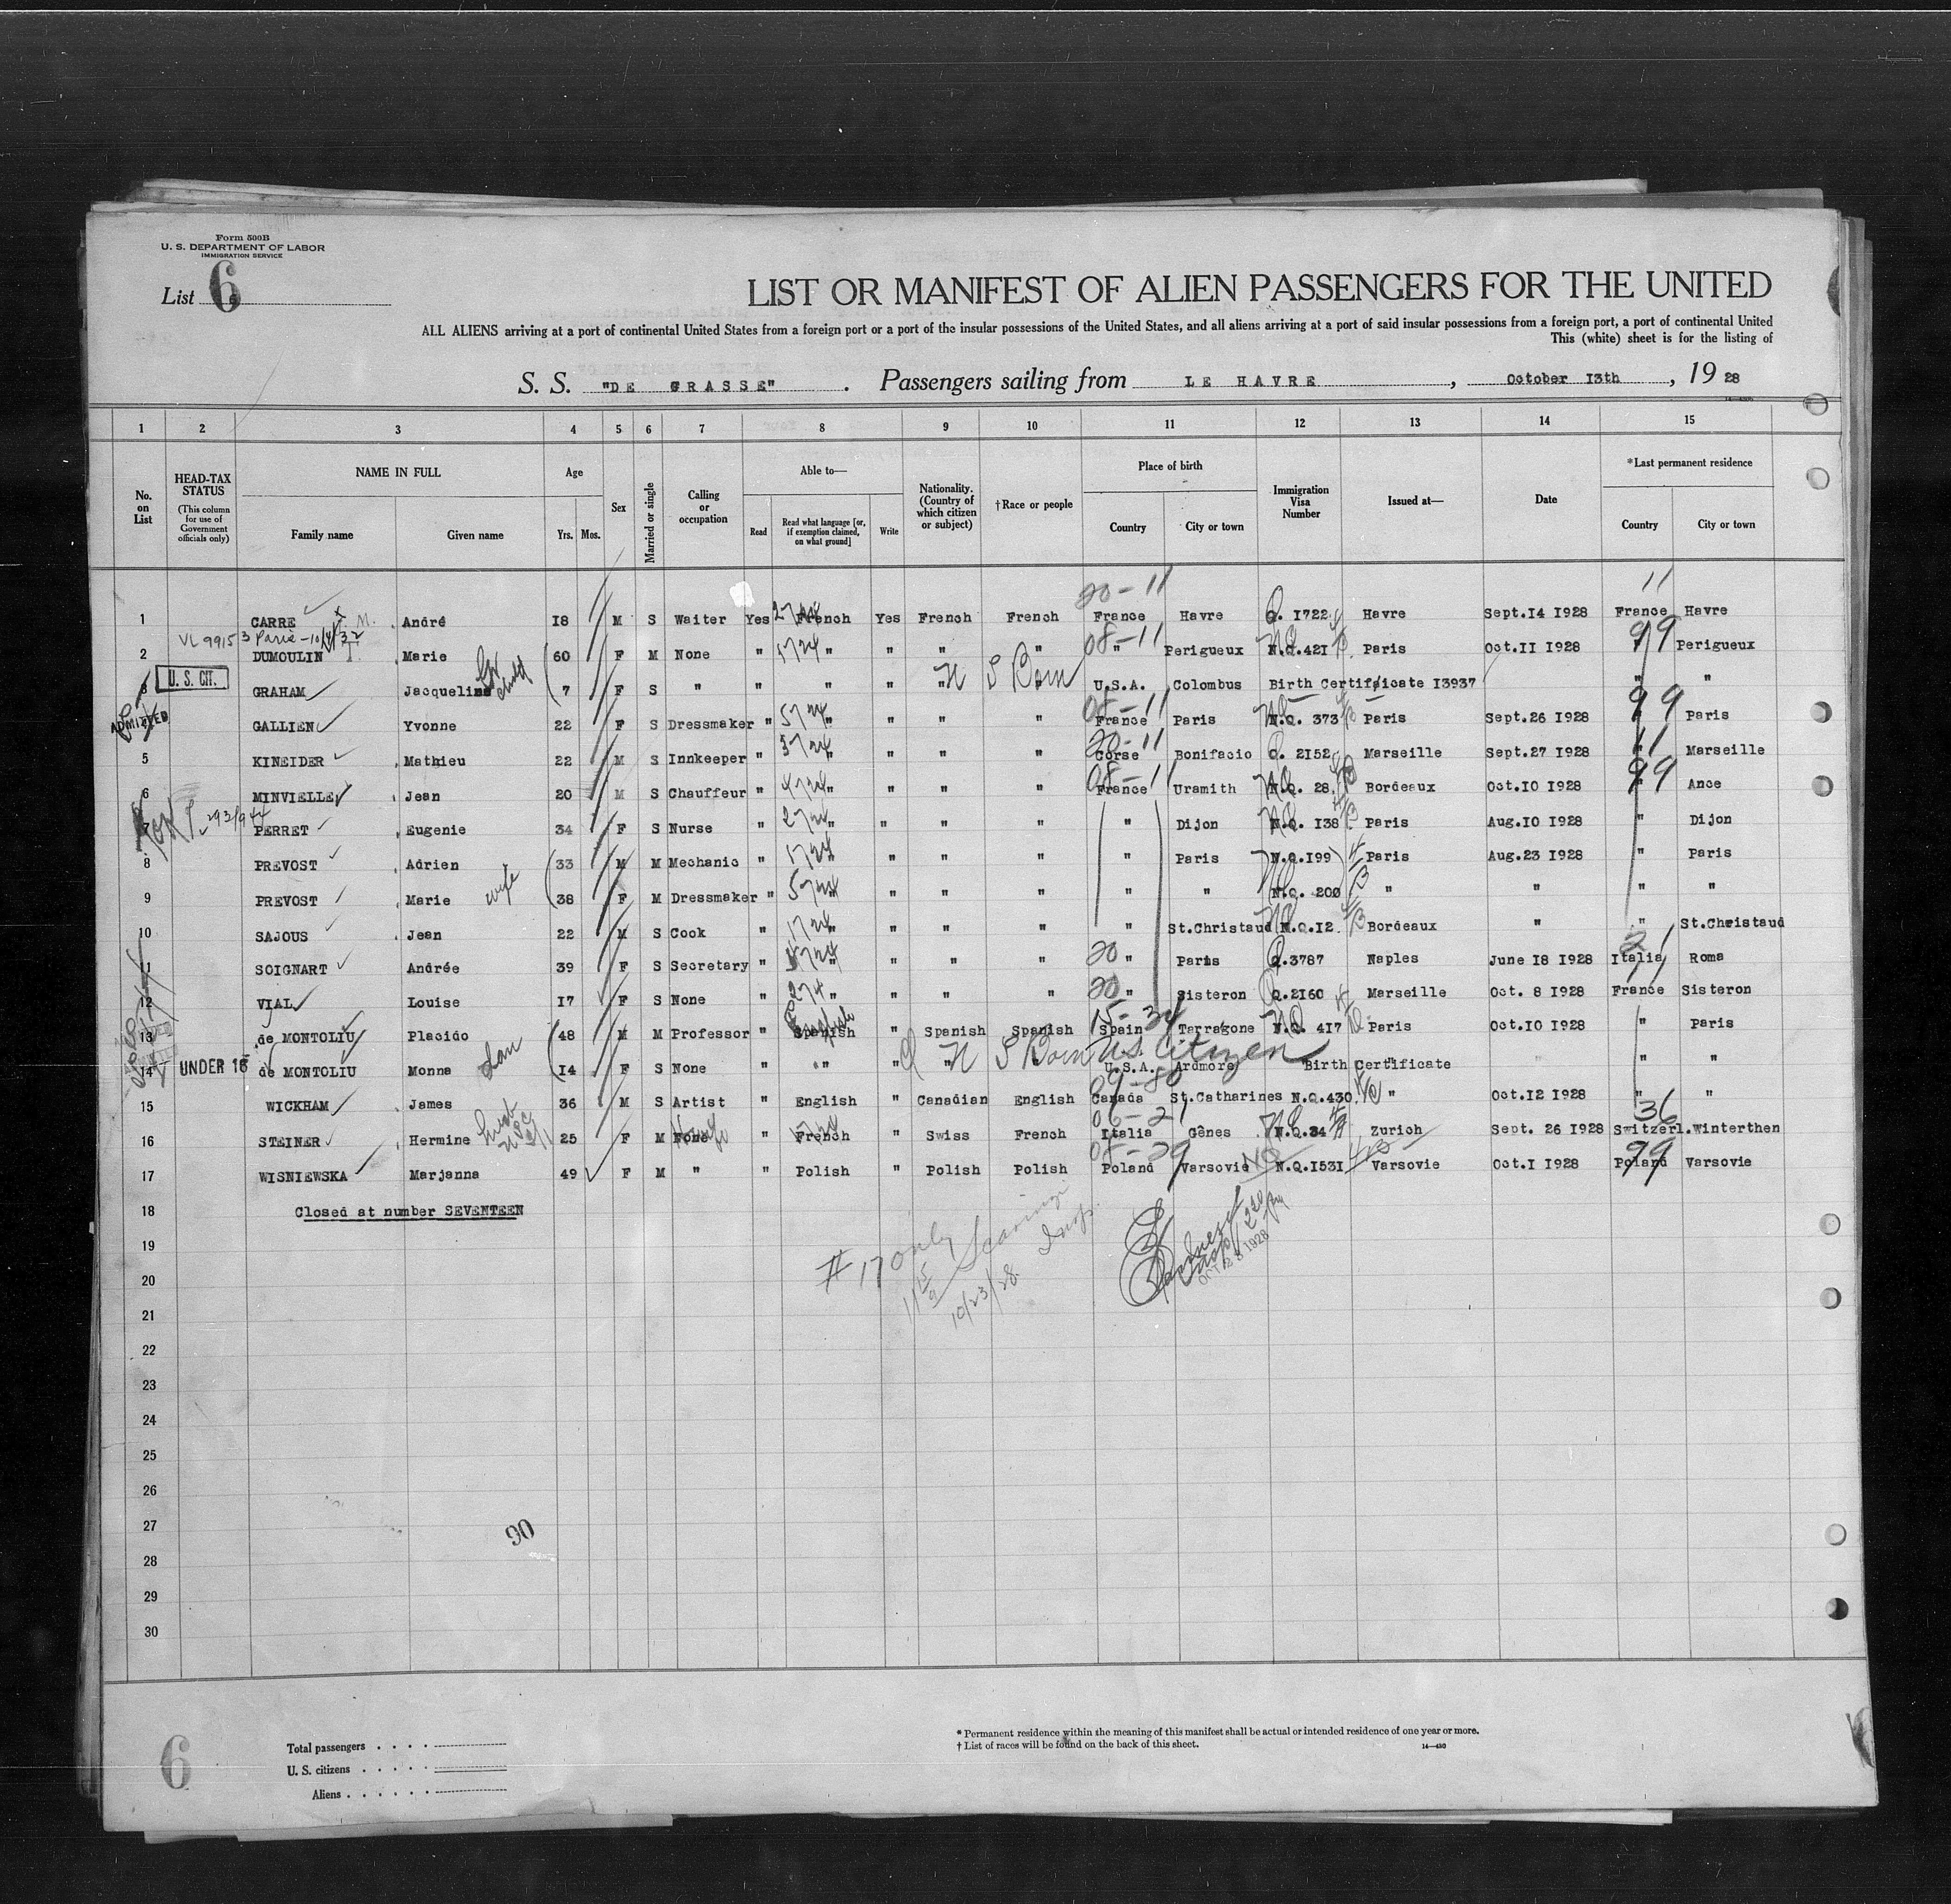 Form 500B
U. S. DEPARTMENT OF LABOR
IMMIGRATION SERVICE
List 6
LIST OR MANIFEST OF ALIEN PASSENGERS FOR THE UNITED
ALL ALIENS arriving at a port of continental United States from a foreign port or a port of the insular possessions of the United States, and all aliens arriving at a port of said insular possessions from a foreign port, a port of continental United
This (white) sheet is for the listing of
S. S. "DE GRASSE" . Passengers sailing from LE HAVRE , October 13th , 19 28
1 2 3 4 5 6 7 8 9 10 11 12 13 14 15
No. on List
HEAD-TAX STATUS (This column for use of Government officials only)
NAME IN FULL Family name Given name
Age Yrs. Mos.
Sex
Married or single
Calling or occupation
Able to— Read Read what language [or, if exemption claimed, on what ground] Write
Nationality. (Country of which citizen or subject)
†Race or people
Place of birth Country City or town
Immigration Visa Number
Issued at—
Date
*Last permanent residence Country City or town
20-11 11
1 CARRE André 18 M S Waiter Yes French Yes French French France Havre Q. 1722 Havre Sept.14 1928 France Havre
VL 99153 Paris
08-11 99
2 DUMOULIN Marie 60 F M None " " " " " " Perigueux N.Q.421 Paris Oct.11 1928 " Perigueux
U. S. CIT. child N S Born
3 GRAHAM Jacqueline 7 F S " " " " " " U.S.A. Colombus Birth Certificate 13937 " "
ADMITTED 08-11 99
4 GALLIEN Yvonne 22 F S Dressmaker " " " " " France Paris N.Q. 373 Paris Sept.26 1928 " Paris
20-11 11
5 KINEIDER Mathieu 22 M S Innkeeper " " " " " Corse Bonifacio Q. 2152 Marseille Sept.27 1928 " Marseille
08-11 99
6 MINVIELLE Jean 20 M S Chauffeur " " " " " France Uramith N.Q. 28 Bordeaux Oct.10 1928 " Ance
7 PERRET Eugenie 34 F S Nurse " " " " " " Dijon N.Q. 138 Paris Aug.10 1928 " Dijon
8 PREVOST Adrien 33 M M Mechanic " " " " " " Paris N.Q.199 Paris Aug.23 1928 " Paris
9 PREVOST Marie wife 38 F M Dressmaker " " " " " " " N.Q. 200 " " " "
10 SAJOUS Jean 22 M S Cook " " " " " " St.Christaud N.Q.12 Bordeaux " " St.Christaud
11 SOIGNART Andrée 39 F S Secretary " " " " " 20 " Paris Q.3787 Naples June 18 1928 Italia Roma
12 VIAL Louise 17 F S None " " " " " 20 " Sisteron Q.2160 Marseille Oct. 8 1928 France Sisteron
English 15-34
13 de MONTOLIU Placido 48 M M Professor " Spanish " Spanish Spanish Spain Tarragone N.Q. 417 Paris Oct.10 1928 " Paris
N S Born US Citizen
14 UNDER 16 de MONTOLIU Monna dau 14 F S None " " " " " U.S.A. Ardmore Birth Certificate " "
15 WICKHAM James 36 M S Artist " English " Canadian English Canada St.Catharines N.Q.430 " Oct.12 1928 " "
06-21 36
16 STEINER Hermine 25 F M None " French " Swiss French Italia Gênes N.Q.34 Zurich Sept. 26 1928 Switzerl. Winterthen
08-29 99
17 WISNIEWSKA Marjanna 49 F M " " Polish " Polish Polish Poland Varsovie N.Q.1531 Varsovie Oct.1 1928 Poland Varsovie
18 Closed at number SEVENTEEN
# 17 only
10/23/28
OCT 23 1928
19
20
21
22
23
24
25
26
27
90
28
29
30
6
Total passengers
U. S. citizens
Aliens
* Permanent residence within the meaning of this manifest shall be actual or intended residence of one year or more.
† List of races will be found on the back of this sheet.
14—430